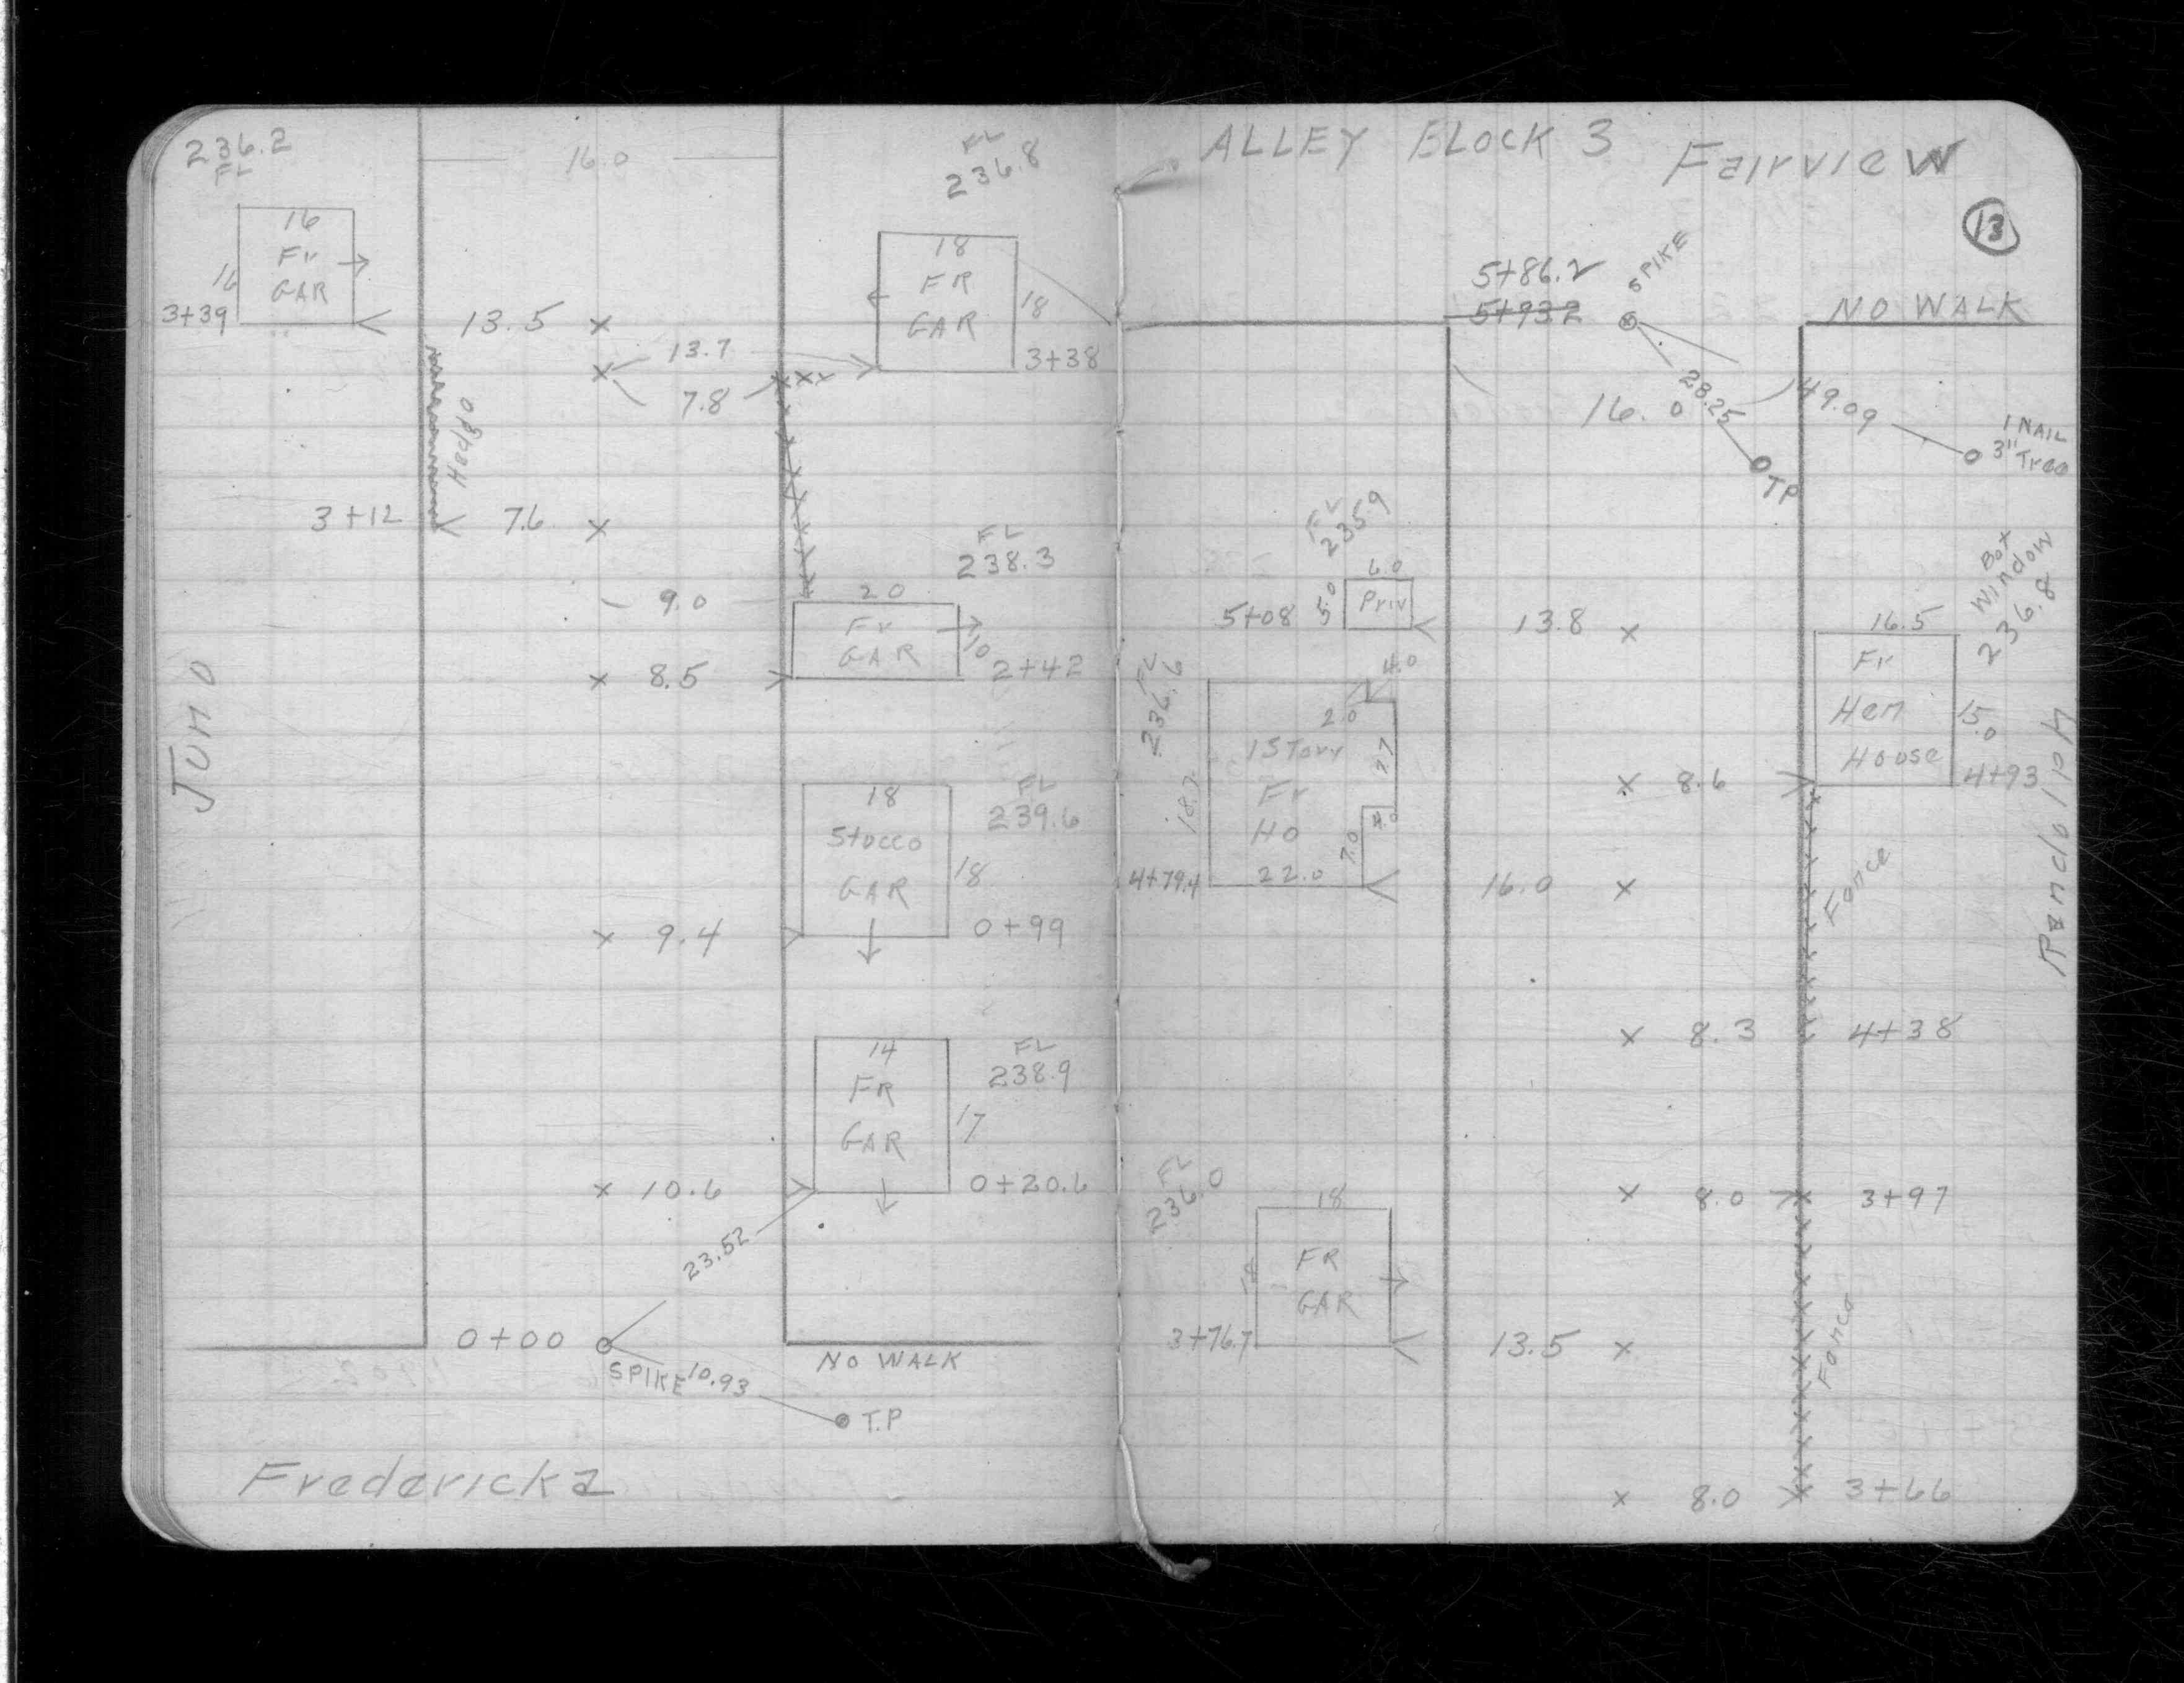 236.2
FL
16
Fr
GAR
16
3+39
16.0
FL
236.8
18
FR
GAR
18
3+38
13.5 x
x 13.7
7.8
Hedge
3+12
7.6 x
FL
238.3
9.0
20
Fr
GAR
10
2+42
x 8.5
Juno
18
Stucco
GAR
18
FL
239.6
0+99
x 9.4
14
FR
GAR
17
FL
238.9
0+20.6
x 10.6
23.52
0+00
SPIKE 10.93
NO WALK
T.P
Fredericka
ALLEY BLOCK 3 Fairview
13
5+86.2
5+93.2
SPIKE
NO WALK
16.0
28.25
TP
49.09
1 NAIL
3" Tree
FL
235.9
6.0
5.0
Priv
5+08
13.8 x
Bot
Window
236.8
16.5
Fr
Hen
House
15.0
4+93
x 8.6
FL
236.6
4.0
2.0
1 Story
Fr
Ho
22.0
18.7
7.0
4.0
4+79.4
16.0 x
Fence
Randolph
x 8.3
4+38
x 8.0 x
3+97
FL
236.0
18
FR
GAR
3+76.7
13.5 x
Fence
x 8.0 x
3+66